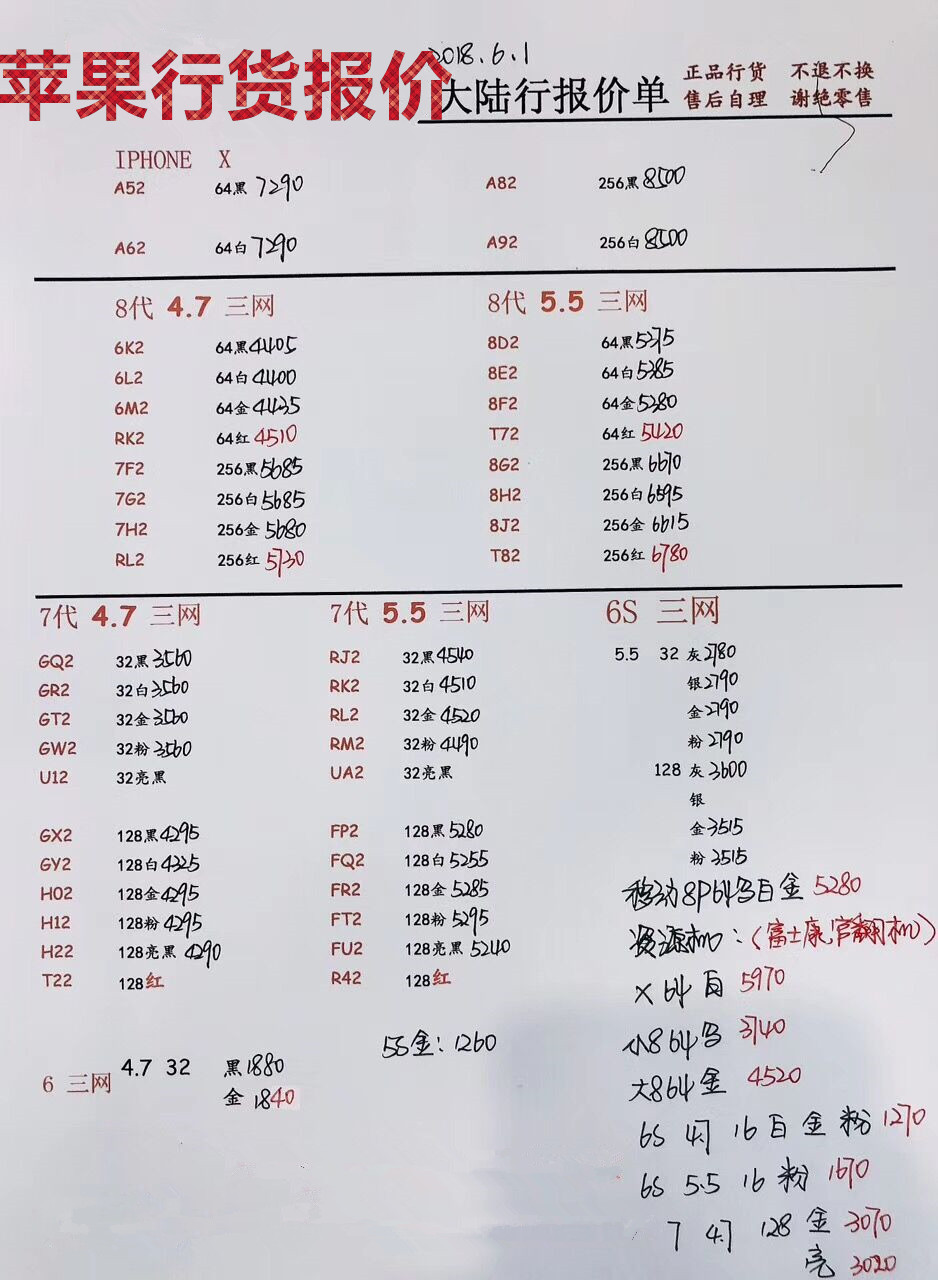 苹果行货报价
2018.6.1
大陆行报价单
正品行货 不退不换
售后自理 谢绝零售
IPHONE X
A52 64黑 7290 A82 256黑 8500
A62 64白 7290 A92 256白 8500
8代 4.7 三网 8代 5.5 三网
6K2 64黑 4405 8D2 64黑 5375
6L2 64白 4400 8E2 64白 5385
6M2 64金 4435 8F2 64金 5380
RK2 64红 4510 T72 64红 5420
7F2 256黑 5685 8G2 256黑 6670
7G2 256白 5685 8H2 256白 6595
7H2 256金 5680 8J2 256金 6615
RL2 256红 5730 T82 256红 6780
7代 4.7 三网 7代 5.5 三网 6S 三网
GQ2 32黑 3560 RJ2 32黑 4540 5.5 32 灰 2780
GR2 32白 3560 RK2 32白 4510 银 2790
GT2 32金 3560 RL2 32金 4520 金 2790
GW2 32粉 3560 RM2 32粉 4490 粉 2790
U12 32亮黑 UA2 32亮黑 128 灰 3600
银
GX2 128黑 4295 FP2 128黑 5280 金 3515
GY2 128白 4325 FQ2 128白 5255 粉 3515
H02 128金 4295 FR2 128金 5285 移动8P64白金 5280
H12 128粉 4295 FT2 128粉 5295
H22 128亮黑 4290 FU2 128亮黑 5240 资源机:(富士康,官翻机)
T22 128红 R42 128红 X 64 白 5970
5S金:1260 小8 64 3740
6 三网 4.7 32 黑 1880 大8 64 金 4520
金 1840
6S 4.7 16 白 金 粉 1270
6S 5.5 16 粉 1670
7 4.7 128 金 3070
亮 3020